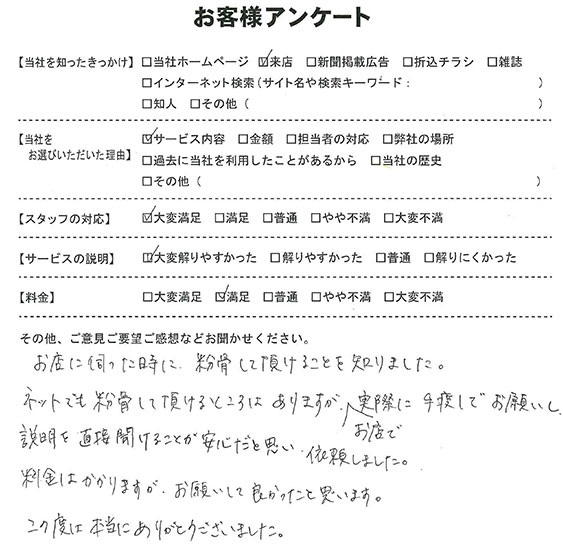 お客様アンケート
【当社を知ったきっかけ】 □当社ホームページ ☑来店 □新聞掲載広告 □折込チラシ □雑誌
□インターネット検索(サイト名や検索キーワード: )
□知人 □その他( )
【当社をお選びいただいた理由】 ☑サービス内容 □金額 □担当者の対応 □弊社の場所
□過去に当社を利用したことがあるから □当社の歴史
□その他( )
【スタッフの対応】 ☑大変満足 □満足 □普通 □やや不満 □大変不満
【サービスの説明】 ☑大変解りやすかった □解りやすかった □普通 □解りにくかった
【料金】 □大変満足 ☑満足 □普通 □やや不満 □大変不満
その他、ご意見ご要望ご感想などお聞かせください。
お店に伺った時に、粉骨して頂けることを知りました。
ネットでも粉骨して頂けるところはありますが、実際にお店で手渡しでお願いし、
説明を直接聞けることが安心だと思い、依頼しました。
料金はかかりますが、お願いして良かったと思います。
この度は本当にありがとうございました。